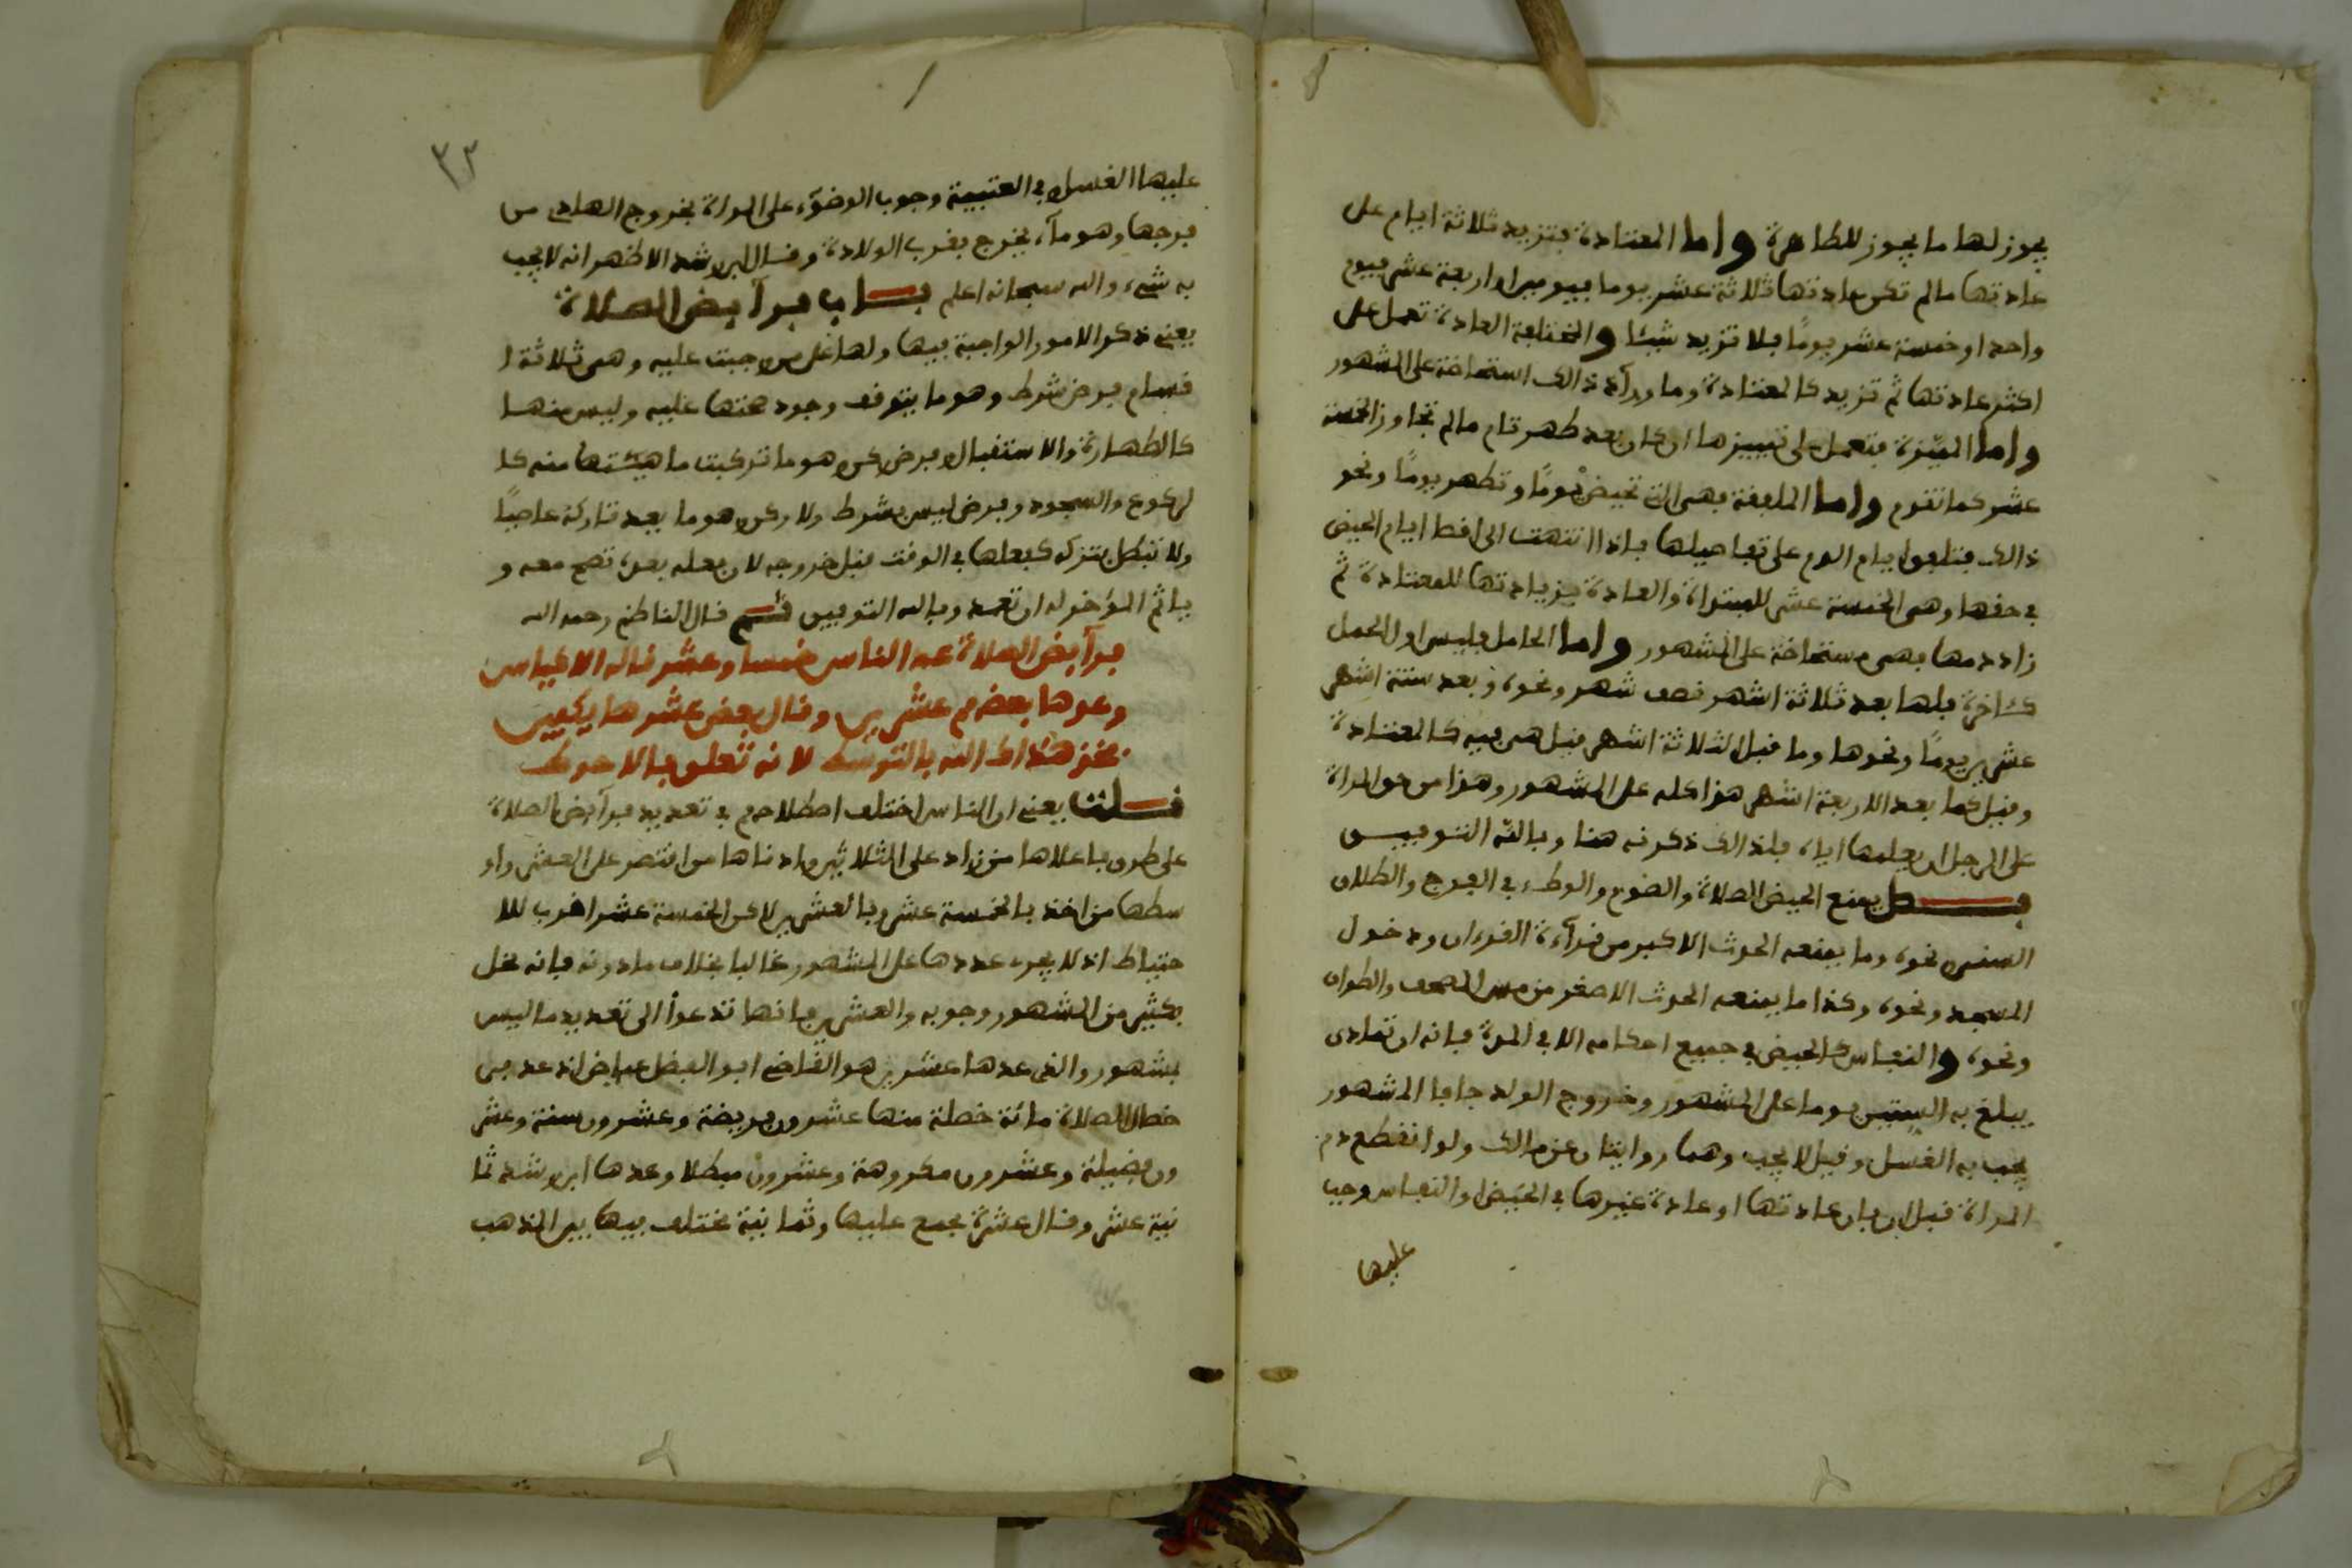 يجوز لها ما يجوز للطاهرة واما المعتادة فتزيد ثلاثة ايام على
عادتها مالم تكن عادتها ثلاثة عشر يوما فيومين او اربعة عشر فيوم
واحد او خمسة عشر يومًا فلا تزيد شيئا والمختلفة العادة تعمل على
اكثر عادتها ثم تزيد كالمعتادة وما ورآء ذالك استحاضة على المشهور
واما المميّزة فتعمل على تمييزها ان كان بعد طهر تام مالم تجاوز الخمسة
عشر كما تقوم واما الملفقة فهى التى تحيض يومًا وتطهر يومًا ونحو
ذالك فتلفق ايام الدم على تفاصيلها فاذا انتهت الى اقصا ايام الحيض
في حقها وهى الخمسة عشر للمبتدأة والعادة بزيادتها للمعتادة ثم
زاد دمها فهى مستحاضة على المشهور واما الحامل فليس اول الحمل
كئاخره فلها بعد ثلاثة اشهر نصف شهر ونحوه وبعد ستة اشهر
عشرين يومًا ونحوها وما قبل الثلاثة اشهر قيل هى فيه كالمعتادة
وقيل كما بعد الاربعة اشهر هذا كله على المشهور وهذا من حق المراة
على الرجل ان يعلمها اياه فلذالك ذكرته هنا وبالله التوفيـــق
فـــصل يمنع الحيض الصلاة والصوم والوطء في الفرج والطلاق
السني ونحوه وما يمنعه الحدث الاكبر من قرآءة القرءان ودخول
المسجد ونحوه وكذا ما يمنعه الحدث الاصغر من مس المصحف والطواف
ونحوه والنفاس كالحيض في جميع احكامه الا في المدة فانه ان تمادى
يبلغ به الستين يوما على المشهور وخروج الولد جافا المشهور
يجب به الغسل وقيل لا يجب وهما روايتان عن مالك ولو انقطع دم
المراة قبل ابان عادتها او عادة غيرها في الحيض او النفاس وجب
عليها
٣٢
عليها الغسل وفي العتبية وجوب الوضوء على المراة بخروج الهادي من
فرجها وهو مآء يخرج بقرب الولادة وقال ابن رشد الاظهر انه لا يجب
به شيء والله سبحانه اعلم بـــاب فرآيض الصلاة
يعني ذكر الامور الواجبة فيها ولها على من وجبت عليه وهى ثلاثة ا
قسام فرض شرط وهو ما يتوقف وجود صحتها عليه وليس منها
كالطهارة والاستقبال وفرض ركن وهو ما تركبت ماهيتها منه كا
لركوع والسجود وفرض ليس بشرط ولا ركن وهو ما يعد تاركه عاصيًا
ولا تبطل بتركه كفعلها في الوقت قبل خروجه لان فعله بعده تصح معه و
ياثم المؤخر له ان تعمد وبالله التوفيق ثـــم قال الناظم رحمه الله
فرآيض الصلاة عد الناس خمسا وعشر قاله الاكياس
وعدها بعضهم عشرين وقال بعض عشرها يكفين
فخذ هداك الله بالتوسط لانه تعلق بالاحوط
قـــلت يعني ان الناس اختلف اصطلاحهم في تعديد فرآيض الصلاة
على طرق باعلاها من زاد على الثلاثين وادناها من اقتصر على العشر واو
سطها من اخذ بالخمسة عشر وبالعشرين لاكن الخمسة عشر اقرب للا
حتياط اذ لا يجرى عددها على المشهور غالبا بخلاف مادونه فانه يخل
بكثير من المشهور وجوبه والعشرين فانها تدعوا الى تعديد ما ليس
بمشهور والذى عدها عشرين هو القاضى ابو الفضل عياض اذ عد في
خصال الصلاة مائة خصلة منها عشرون فريضة وعشرون سنة وعشر
ون فضيلة وعشرون مكروهة وعشرون مبطلا وعدها ابن رشد ثما
نية عشر وقال عشرة مجمع عليها وثمانية مختلف فيها بين المذهب